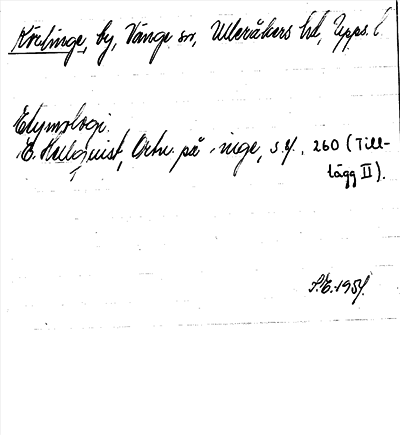 Körlinge, by, Vänge sn, Ulleråkers hd, Upps. l
Etymologi.
E. Hellquist, Ortn. på -inge, s. 260 (Till-
lägg II).